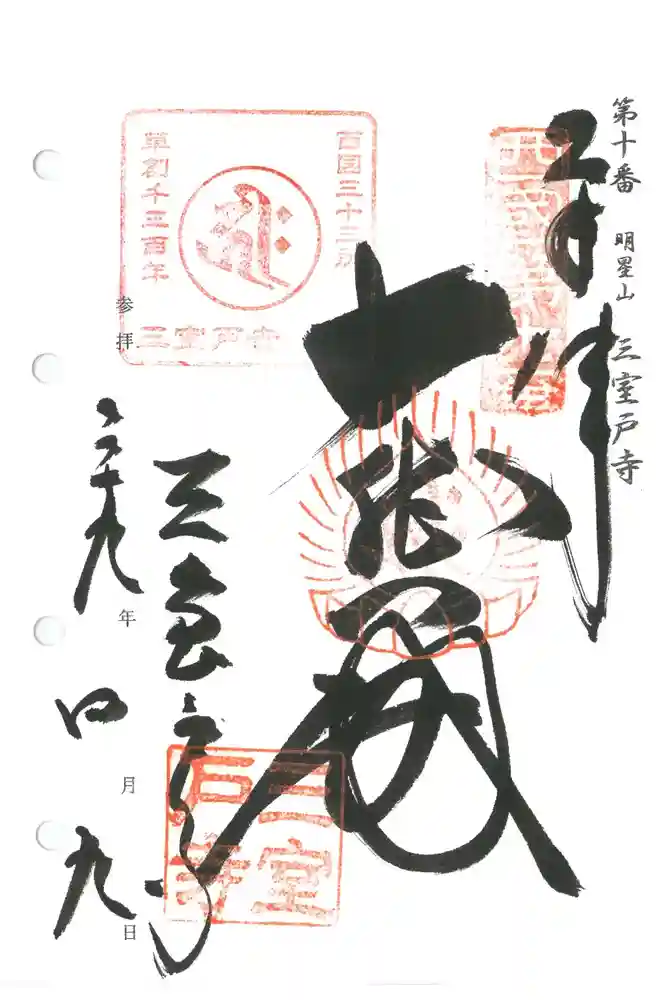 第十番 明星山 三室戸寺
奉拝
西国第十番
大悲殿
西国三十三所
草創千三百年
三室戸寺
参拝
三室戸寺
三室戸寺
二十九年
四月
九日